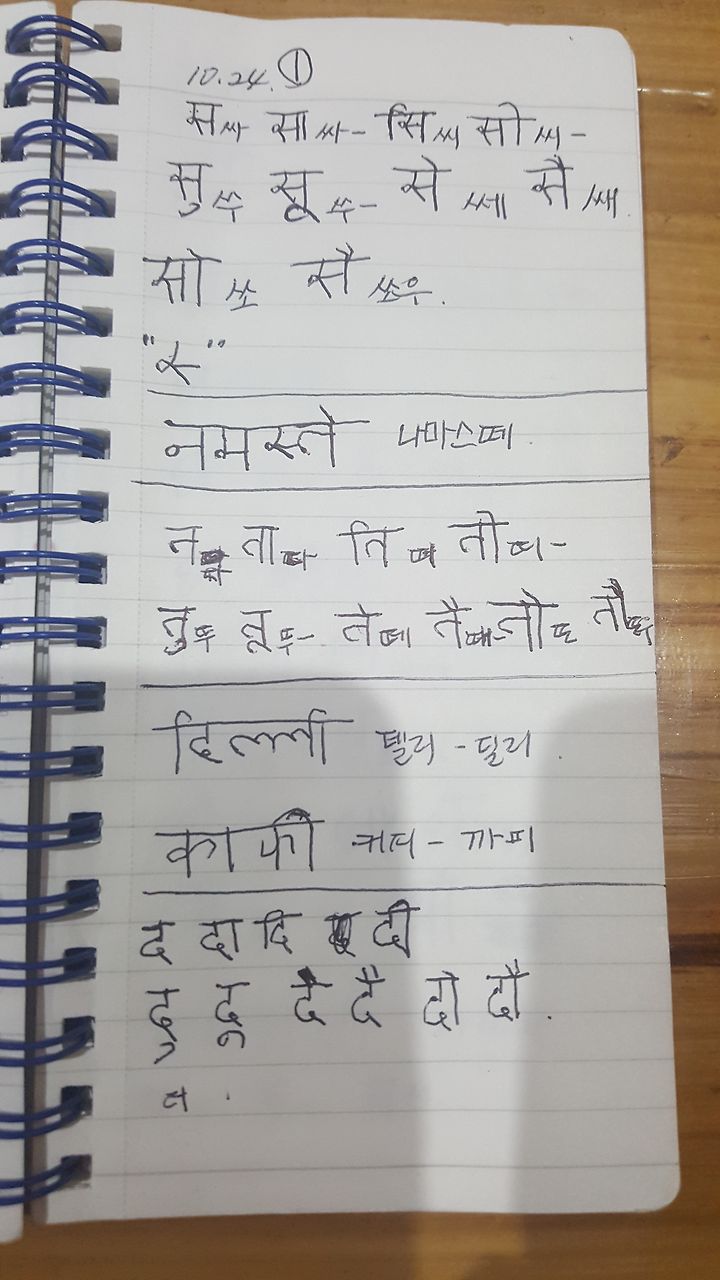 10.24. ①
स 싸 सा 싸- सि 씨 सी 씨-
सु 쑤 सू 쑤- से 쎄 सै 쌔.
सो 쏘 सै 쏘우.
नमस्ते 나마스떼.
त ता 따 ति 띠 ती 띠-
तु 뚜 तू 뚜- ते 떼 तै 때- तो 또 तौ
दिल्ली 델리 - 딜리.
काफी 커피 - 까피
द दा दि दी
दु दू दे दै दो दौ.